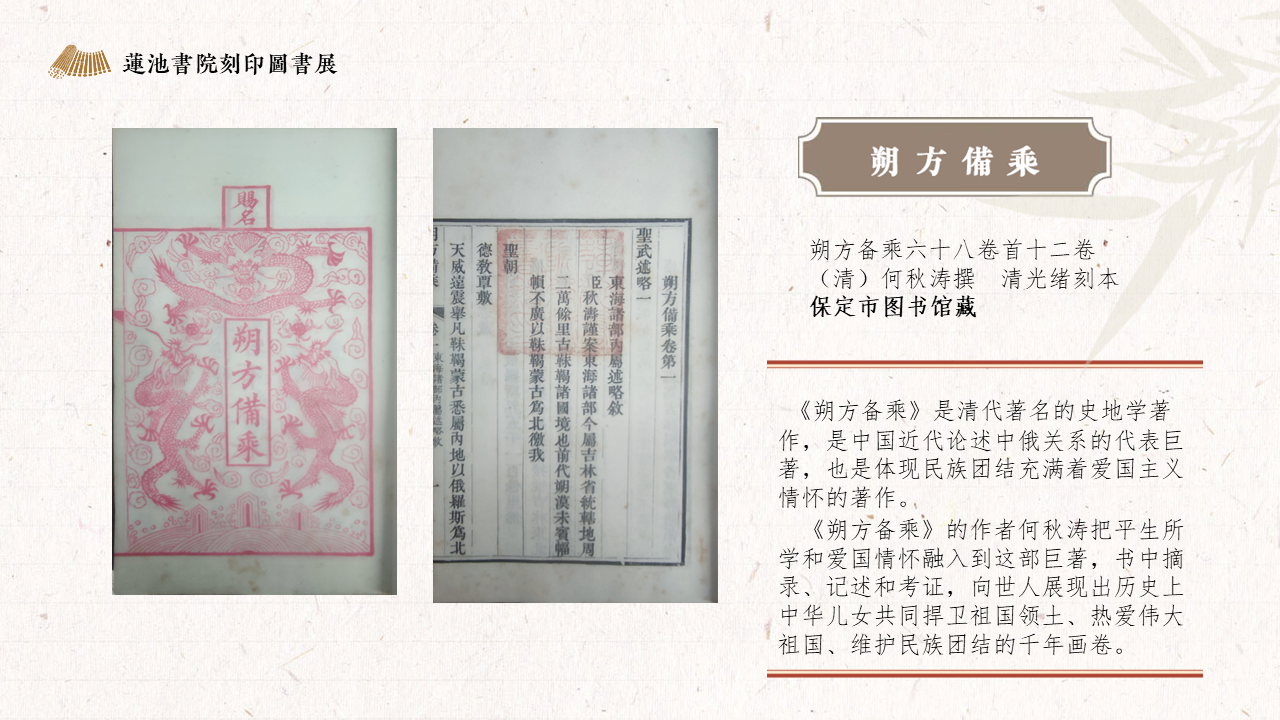 蓮池書院刻印圖書展
賜名
朔方備乘
朔方備乘卷第一
聖武述略一
東海諸部內屬述略敘
臣秋濤謹案東海諸部今屬吉林省統轄地周
二萬餘里古靺鞨諸國境也前代朔漠未賓幅
幀不廣以靺鞨蒙古為北徼我
聖朝
德教覃敷
天威遠震舉凡靺鞨蒙古悉屬內地以俄羅斯為北
朔方備乘
朔方备乘六十八卷首十二卷
（清）何秋涛撰　清光绪刻本
保定市图书馆藏
《朔方备乘》是清代著名的史地学著
作，是中国近代论述中俄关系的代表巨
著，也是体现民族团结充满着爱国主义
情怀的著作。
《朔方备乘》的作者何秋涛把平生所
学和爱国情怀融入到这部巨著，书中摘
录、记述和考证，向世人展现出历史上
中华儿女共同捍卫祖国领土、热爱伟大
祖国、维护民族团结的千年画卷。